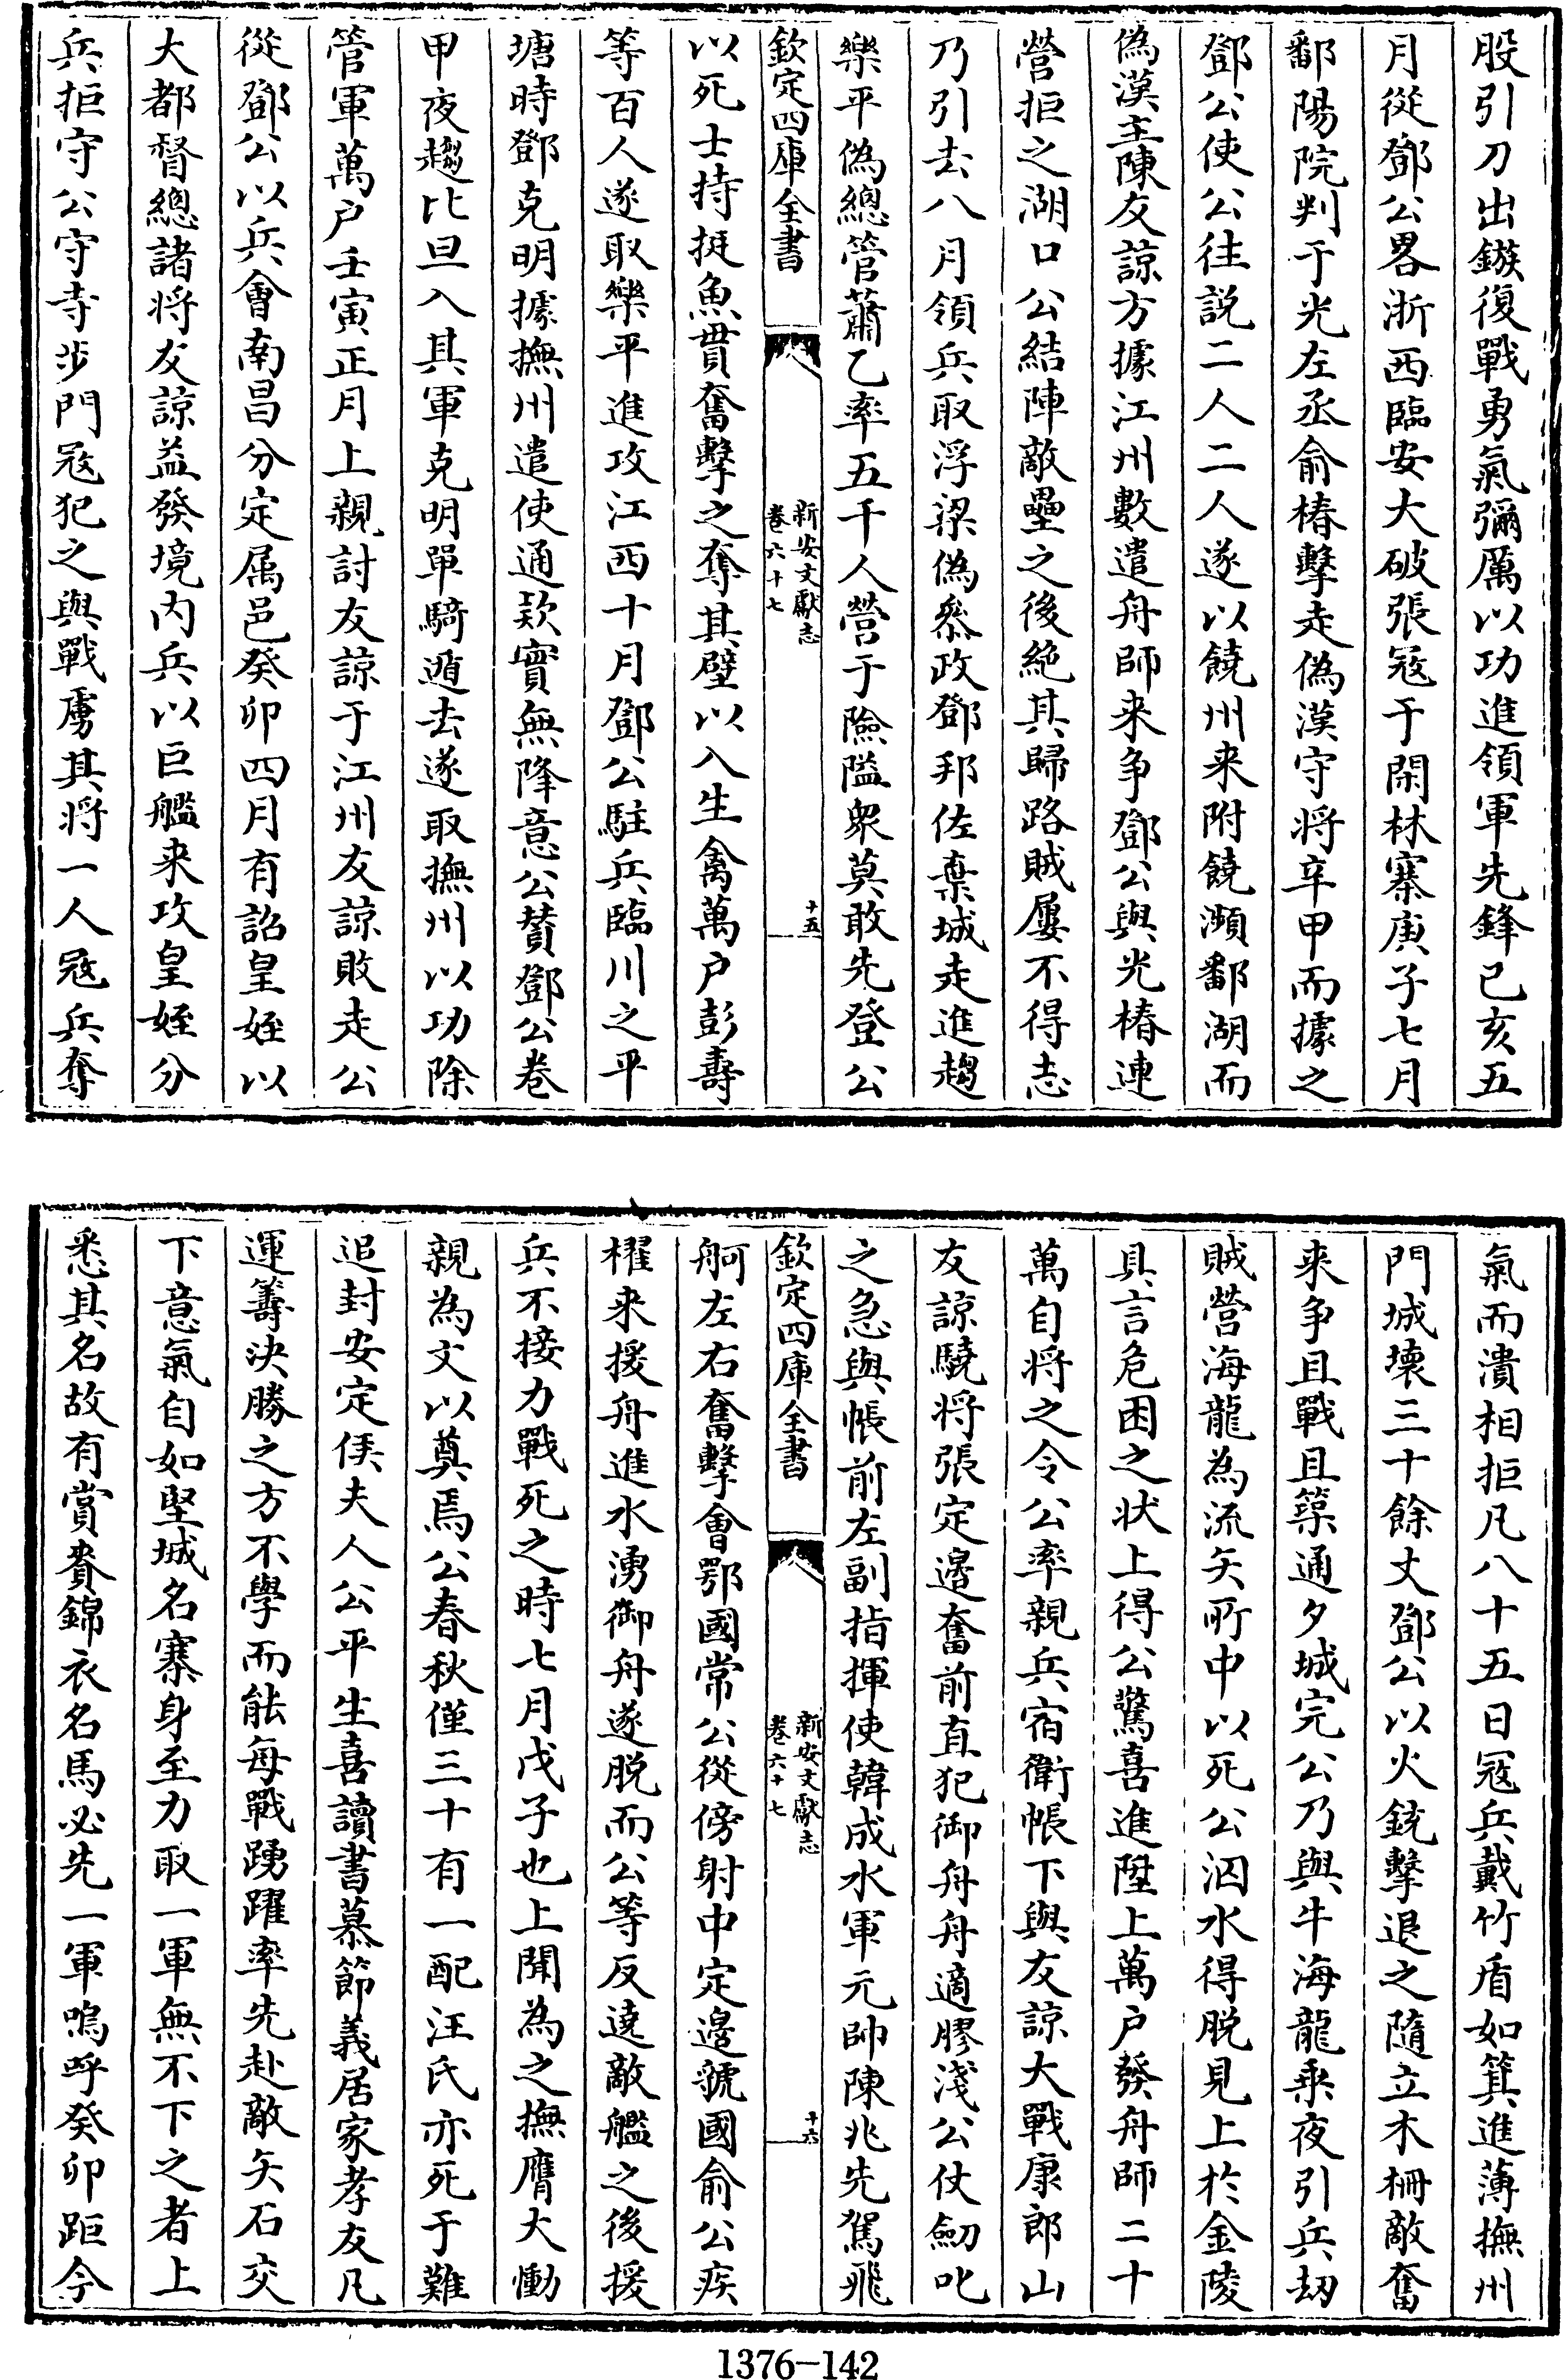 股引刀出鏃復戰勇氣彌厲以功進領軍先鋒己亥五
月從鄧公畧浙西臨安大破張冦于閑林寨庚子七月
鄱陽院判于光左丞俞椿擊走偽漢守將辛甲而據之
鄧公使公往説二人二人遂以饒州来附饒瀕鄱湖而
偽漢主陳友諒方據江州數遣舟師来争鄧公與光椿連
營拒之湖口公結陣敵壘之後絶其歸路賊屢不得志
乃引去八月領兵取浮梁偽叅政鄧邦佐棄城走進趨
樂平偽總管蕭乙率五千人營于險隘衆莫敢先登公
欽定四庫全書
新安文獻志
卷六十七
十五
以死士持挺魚貫奮擊之奪其壁以入生禽萬户彭壽
等百人遂取樂平進攻江西十月鄧公駐兵臨川之平
塘時鄧克明據撫州遣使通欵實無降意公贊鄧公卷
甲夜趨比旦入其軍克明單騎遁去遂取撫州以功除
管軍萬户壬寅正月上親討友諒于江州友諒敗走公
從鄧公以兵會南昌分定属邑癸卯四月有詔皇姪以
大都督總諸将友諒益發境内兵以巨艦来攻皇姪分
兵拒守公守寺步門冦犯之與戰虜其将一人冦兵奪
氣而潰相拒凡八十五日冦兵戴竹盾如箕進薄撫州
門城壊三十餘丈鄧公以火銃擊退之隨立木柵敵奮
来争且戰且築通夕城完公乃與牛海龍乘夜引兵刼
賊營海龍為流矢所中以死公泅水得脱見上於金陵
具言危困之状上得公驚喜進陞上萬户發舟師二十
萬自将之令公率親兵宿衛帳下與友諒大戰康郎山
友諒驍将張定邊奮前直犯御舟舟適膠淺公仗劒叱
之急與帳前左副指揮使韓成水軍元帥陳兆先駕飛
欽定四庫全書
新安文獻志
卷六十七
十六
舸左右奮擊會鄂國常公從傍射中定邊虢國俞公疾
櫂来援舟進水湧御舟遂脱而公等反遶敵艦之後援
兵不接力戰死之時七月戊子也上聞為之撫膺大慟
親為文以奠焉公春秋僅三十有一配汪氏亦死于難
追封安定侯夫人公平生喜讀書慕節義居家孝友凡
運籌決勝之方不學而能每戰踴躍率先赴敵矢石交
下意氣自如堅城名寨身至力取一軍無不下之者上
悉其名故有賞賚錦衣名馬必先一軍嗚呼癸卯距今
1376-142